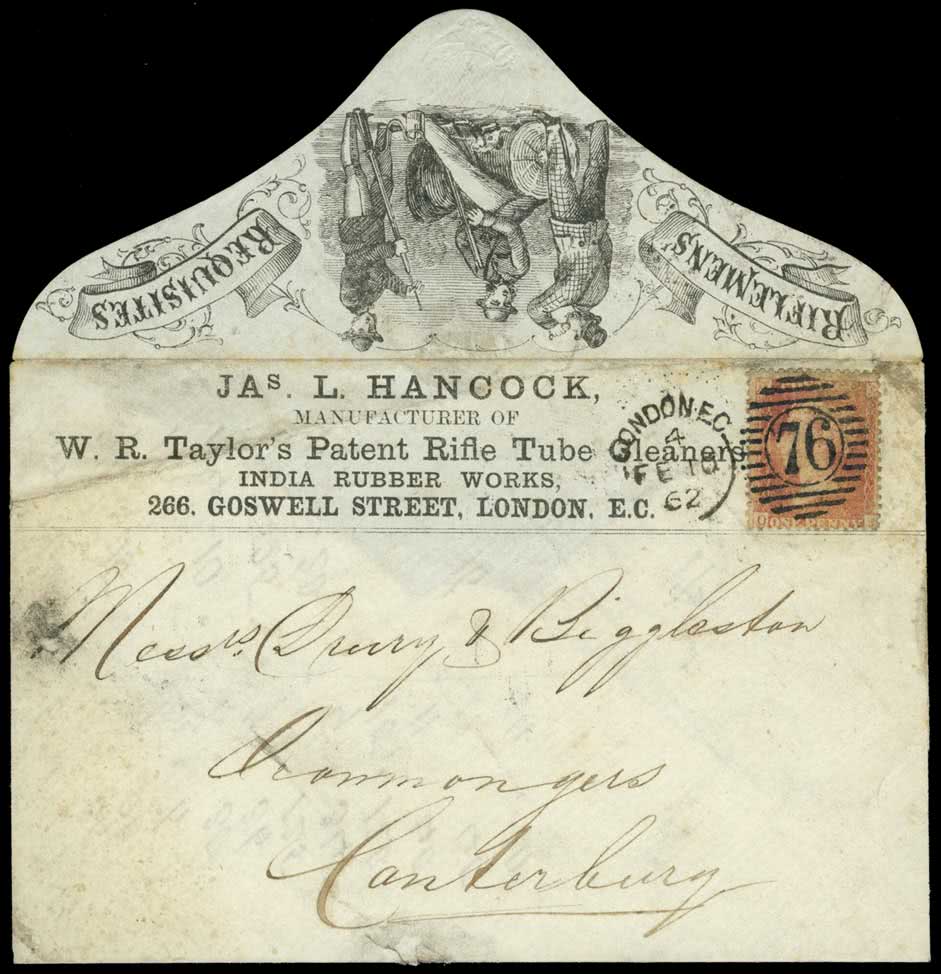 RIFLEMEN'S
REQUISITES
JAS. L. HANCOCK,
MANUFACTURER OF
W. R. Taylor's Patent Rifle Tube Cleaners
INDIA RUBBER WORKS,
266. GOSWELL STREET, LONDON, E.C.
LONDON·E.C
4
FE 10
62
76
O ONE PENNY E
Messrs. Drury & Biggleston
Ironmongers
Canterbury